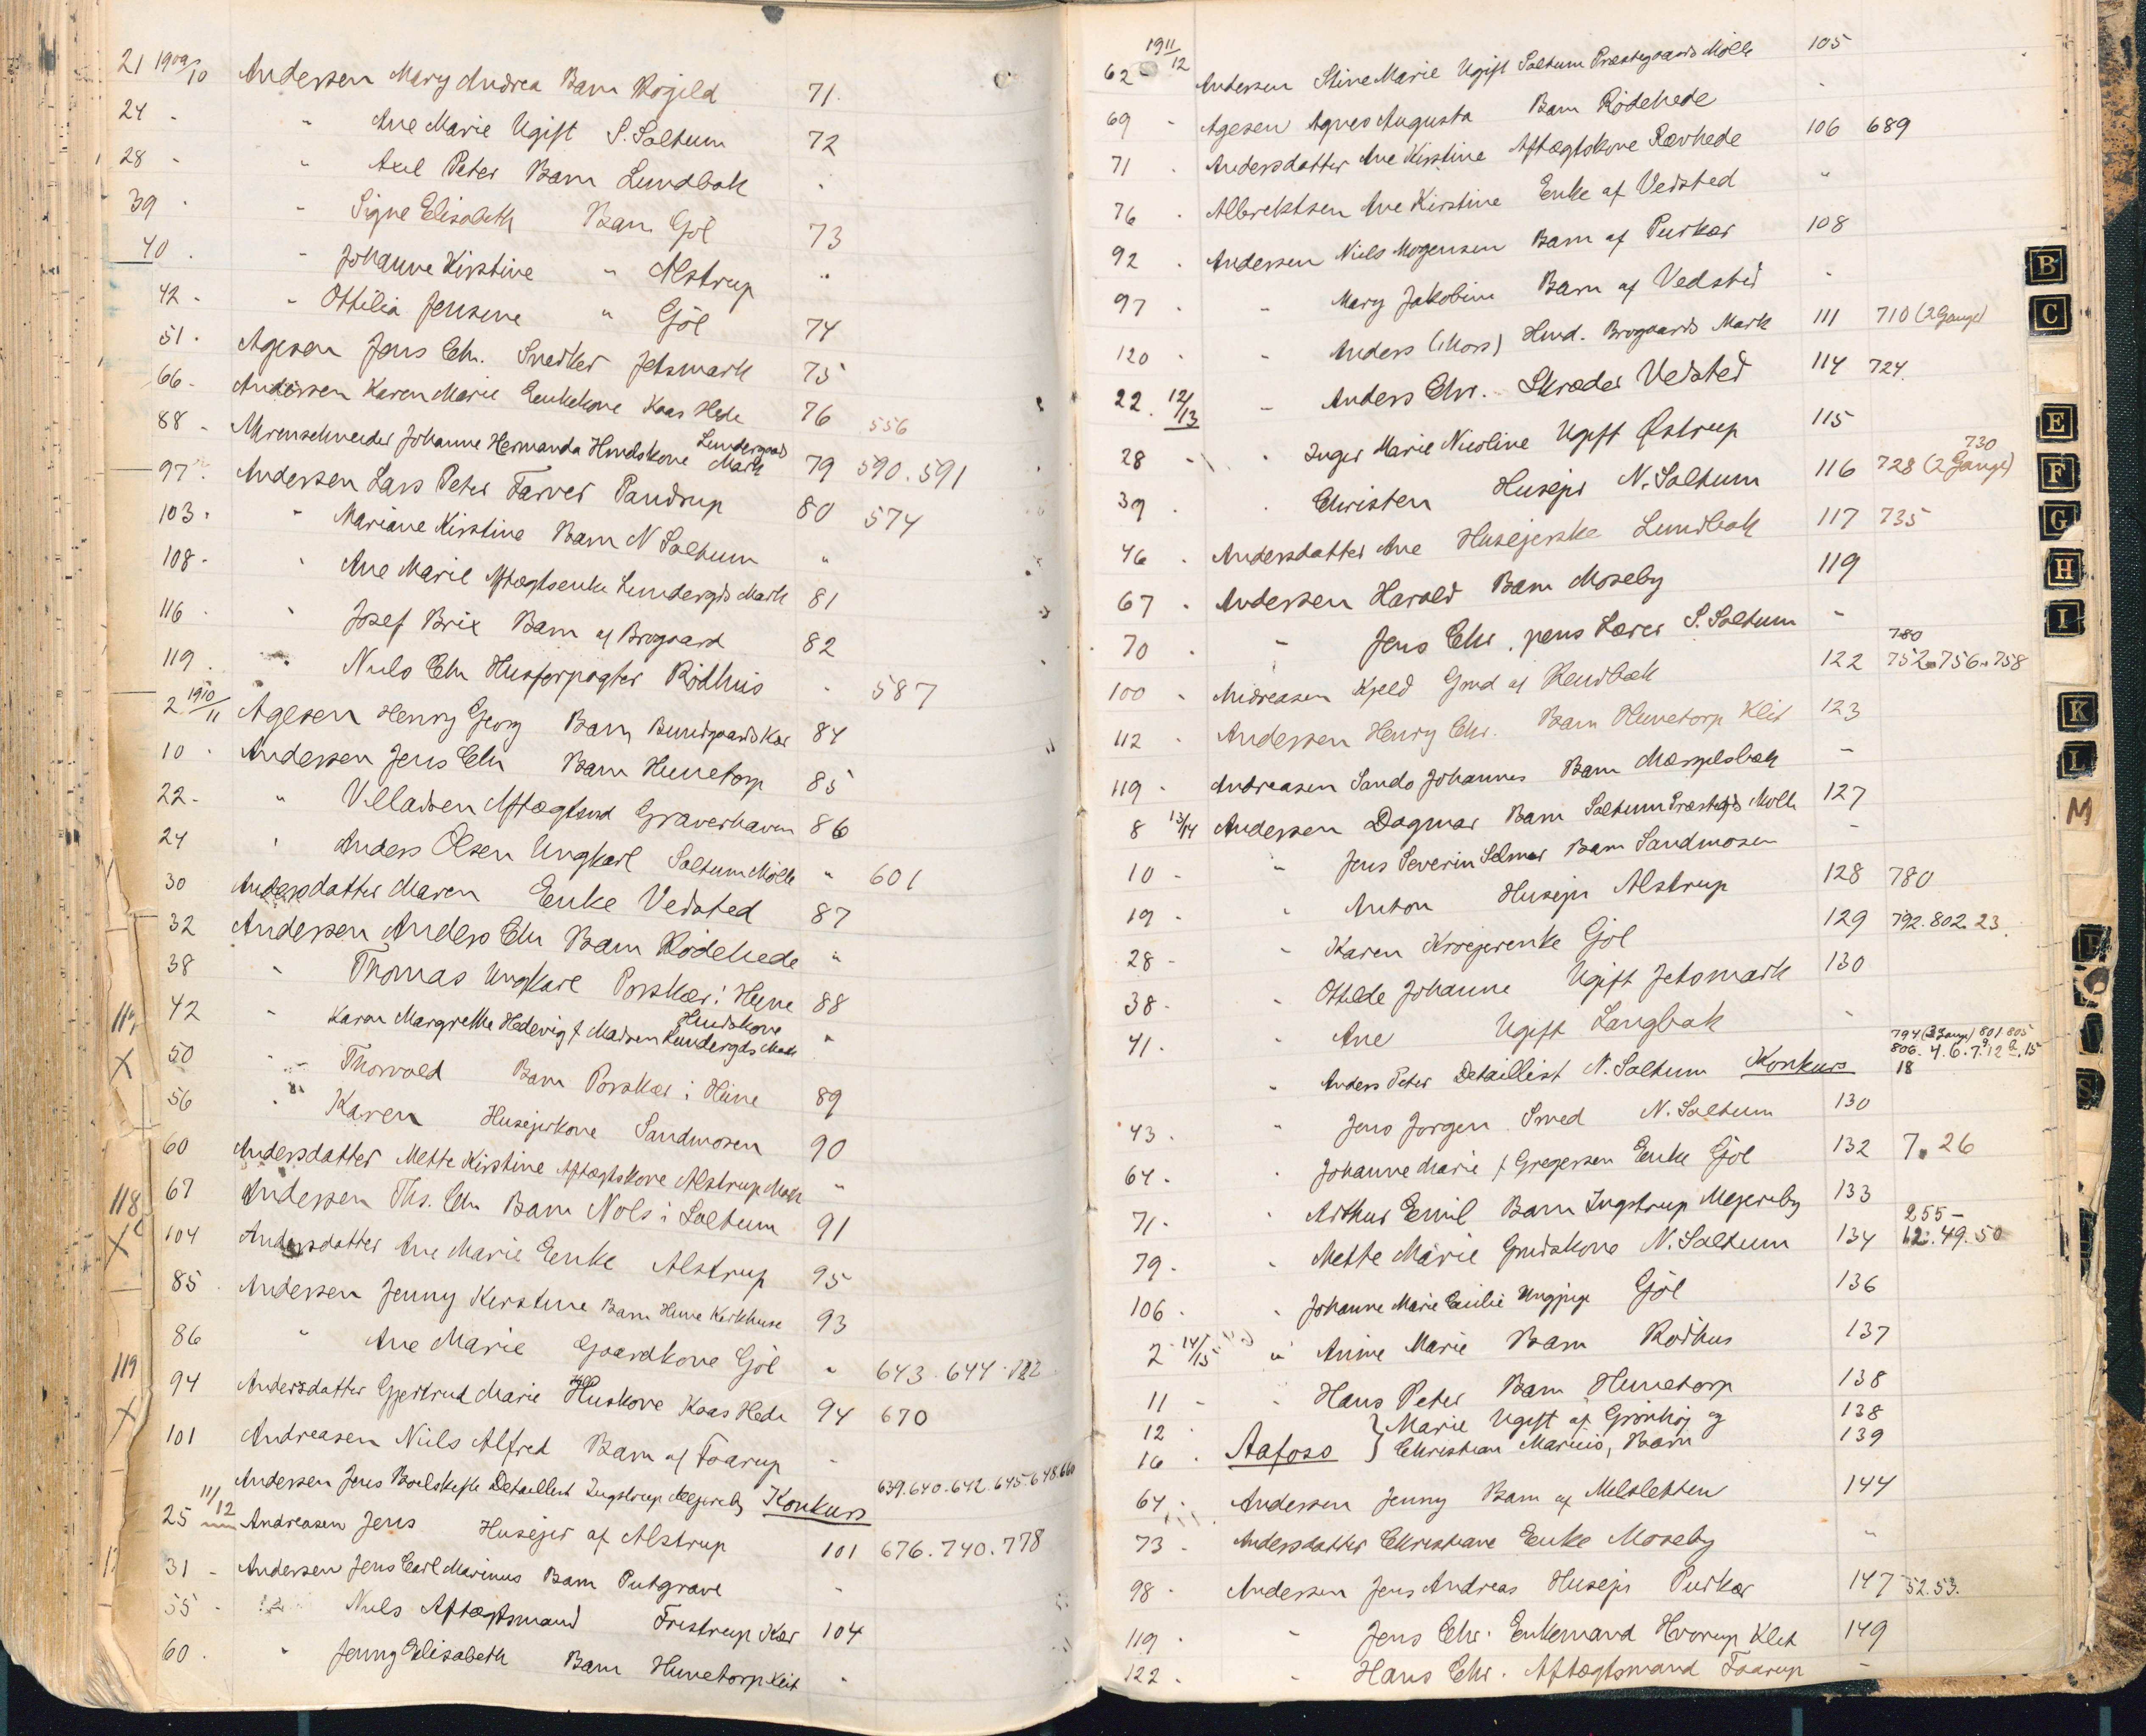 21 1909/10 Andersen Mary Andrea Barn Røgild 71
24 - " Ane Marie Ugift S. Saltum 72
28 - " Axel Peter Barn Lundbak "
39 - " Signe Elisabeth Barn Gjøl 73
40 - " Johanne Kirstine " Alstrup "
42 - " Ottilia Jensine " Gjøl 74
51 - Agesen Jens Chr. Snedker Jetsmark 75
66 - Andersen Karen Marie Enkekone Kaas Hede 76 556
88 - Ahrenschneider Johanne Hermanda Hmdskone Lundergaard Mark 79 590. 591
97 - Andersen Lars Peter Farver Pandrup 80 574
103 - " Mariane Kirstine Barn N Saltum "
108 - " Ane Marie Aftægtsenke Lundergds Mark 81
116 - " Josef Brix Barn af Brogaard 82
119 - " Niels Chr Husforpagter Rödhus " 587
2 1910/11 Agesen Henry Georg Barn Bundgaards Kær 84
10 - Andersen Jens Chr Barn Hunetorp 85
22 - " Villadsen Aftægtsmd Graverhaven 86
24 " Anders Olsen Ungkarl Saltum Mölle " 601
30 Andersdatter Maren Enke Vedsted 87
32 Andersen Anders Chr Barn Rödehede "
38 " Thomas Ungkarl Porskær i Hune 88
42 " Karen Margrethe Hedevig f Madsen Hmdskone Lundergds Mark "
50 " Thorvald Barn Porskær i Hune 89
56 " Karen Husejerkone Sandmosen 90
60 Andersdatter Mette Kirstine Aftægtskone Alstrup Mark "
67 Andersen Ths. Chr Barn Nols i Saltum 91
104 Andersdatter Ane Marie Enke Alstrup 95
85 - Andersen Jenny Kirstine Barn Hune Kirkhuse 93
86 " Ane Marie Gaardkone Gjöl " 643. 644.
94 Andersdatter Gjertrud Marie Huskone Kaas Hede 94 670
101 Andreasen Niels Alfred Barn af Faarup "
Andersen Jens Detaillist Ingstrup Mejeriby Konkurs 639. 640. 642. 645. 648. 660
25 11/12 Andreasen Jens Husejer af Alstrup 101 676. 740. 778
31 - Andersen Jens Carl Marinus Barn Putgrave "
55 - " Niels Aftægtsmand Fristrup Kær 104
60 - " Jenny Elisabeth Barn Hunetorp Klit "
117
X
118
X
119
X
62 - 1911/12 Andersen Stine Marie Ugift Saltum Præstegaards Mölle 105
69 - Agesen Agnes Augusta Barn Rödehede "
71 - Andersdatter Ane Kirstine Aftægtskone Rævhede 106 689
76 - Albrektsen Ane Kirstine Enke af Vedsted "
92 - Andersen Niels Mogensen Barn af Purkær 108
97 - " Mary Jakobine Barn af Vedsted "
120 - " Anders (Mors) Hmd. Brogaards Mark 111 710 (2 Gange)
22. 12/13 " Anders Chr. Skræder Vedsted 114 724.
28 - " Inger Marie Nicoline Ugift Østrup 115
39 - " Christen Husejer N. Saltum 116 728 (2 Gange) 730
46 - Andersdatter Ane Husejerske Lundbak 117 735
67 - Andersen Harald Barn Moseby 119
70 - " Jens Chr. pens Lærer S. Saltum "
100 - Andreasen Kjeld Gmd af Rendbæk 122 752. 756. 758 780
112 - Andersen Henry Chr. Barn Hunetorp Klit 123
119 - Andreasen Sando Johannes Barn Mærgelsbæk "
8 13/14 Andersen Dagmar Barn Saltum Præstegds Mölle 127
10 - " Jens Severin Selmer Barn Sandmosen "
19 - " Anton Husejer Alstrup 128 780
28 - " Karen Kroejerenke Gjöl 129 792. 802. 23.
38 - " Othilde Johanne Ugift Jetsmark 130
41 - " Ane Ugift Langbak "
" Anders Peter Detaillist N. Saltum Konkurs 794 (3 Gange) 801 805 806. 4. 6. 7. 12. 15 18
43 - " Jens Jørgen Smed N. Saltum 130
64 - " Johanne Marie f Gregersen Enke Gjöl 132 7. 26
71 - " Arthur Emil Barn Ingstrup Mejeriby 133
79 - " Mette Marie Gmdskone N. Saltum 134 12. 49. 50 255 -
106 - " Johanne Marie Emilie Ungpige Gjöl 136
2 14/15 " Anine Marie Barn Rödhus 137
11 - " Hans Peter Barn Hunetorp 138
12 } Marie Ugift af Grönhöj og 138
16 - Aafoso } Christian Marius, Barn 139
64 - Andersen Jenny Barn af Melsletten 144
73 - Andersdatter Christiane Enke Moseby "
98 - Andersen Jens Andreas Husejer Purkær 147 52. 53.
119 - " Jens Chr. Enkemand Hvorup Klit 149
122 - " Hans Chr. Aftægtsmand Faarup "
B
C
E
F
G
H
I
K
L
M
S